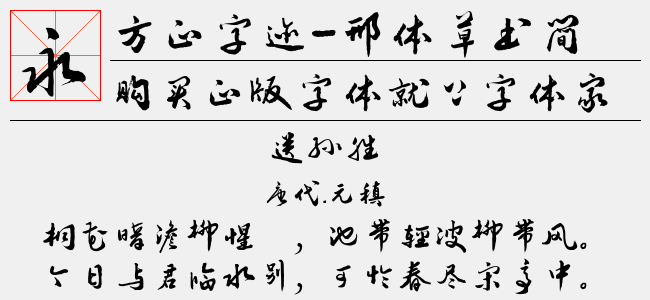 永
方正字迹-邢体草书简
购买正版字体就上字体家
送孙胜
唐代.元稹
桐花暗澹柳惺 ，池带輕波柳带风。
今日与君临水别，可怜春尽宋亭中。